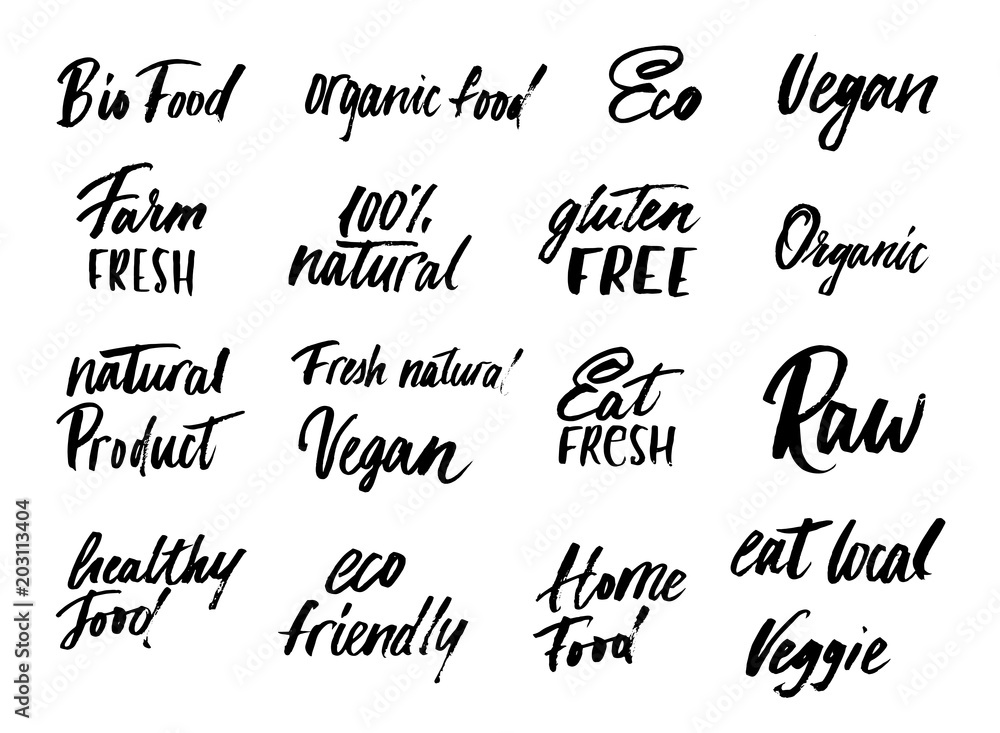 Bio Food
organic food
Eco
Vegan
Farm
FRESH
100%
natural
gluten
FREE
Organic
natural
Product
Fresh natural
Vegan
Eat
FRESH
Raw
healthy
food
eco
friendly
Home
Food
eat local
Veggie
Adobe Stock | #203113404